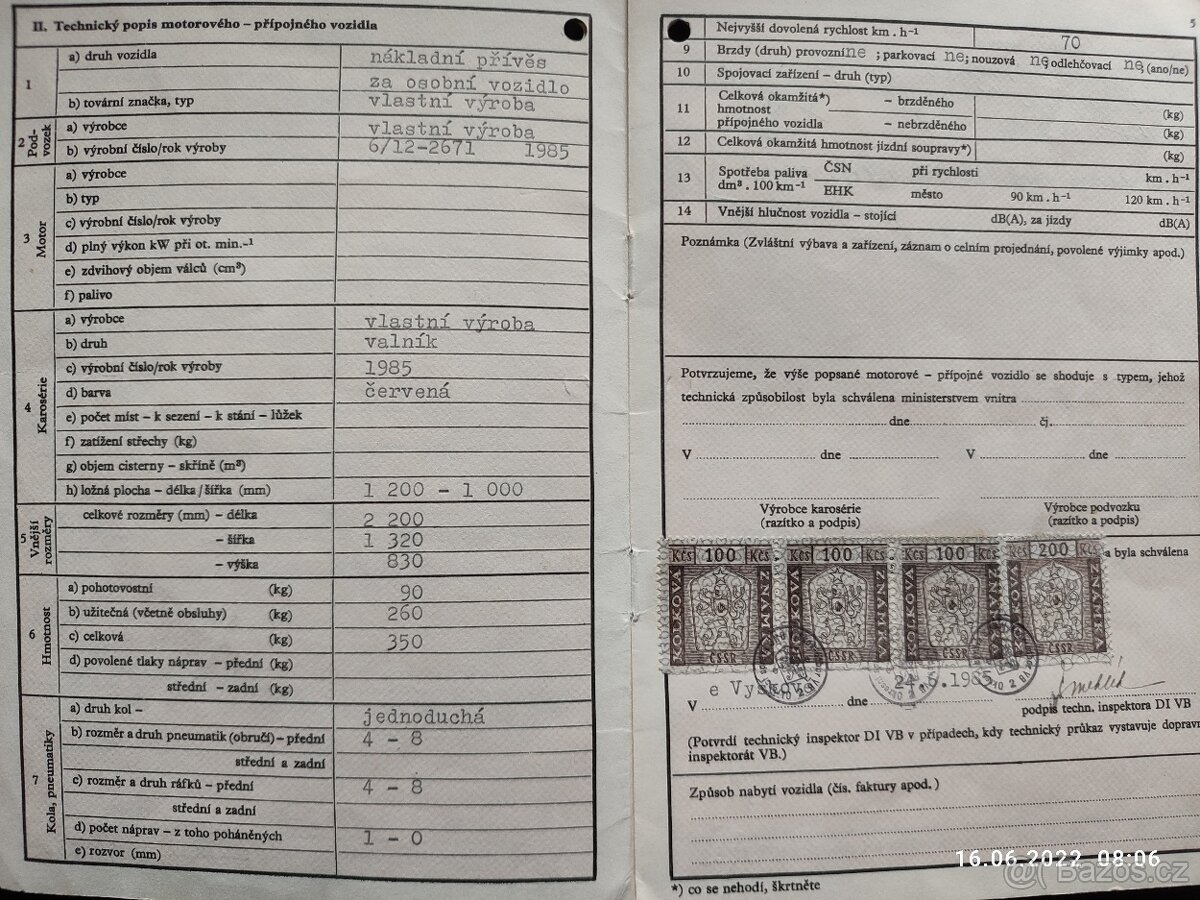 II. Technický popis motorového – přípojného vozidla
1
a) druh vozidla nákladní přívěs
za osobní vozidlo
b) tovární značka, typ vlastní výroba
2 Pod-vozek
a) výrobce vlastní výroba
b) výrobní číslo/rok výroby 6/12-2671 1985
3 Motor
a) výrobce
b) typ
c) výrobní číslo/rok výroby
d) plný výkon kW při ot. min.-¹
e) zdvihový objem válců (cm³)
f) palivo
4 Karosérie
a) výrobce vlastní výroba
b) druh valník
c) výrobní číslo/rok výroby 1985
d) barva červená
e) počet míst – k sezení – k stání – lůžek
f) zatížení střechy (kg)
g) objem cisterny – skříně (m³)
h) ložná plocha – délka/šířka (mm) 1 200 - 1 000
5 Vnější rozměry
celkové rozměry (mm) – délka 2 200
– šířka 1 320
– výška 830
6 Hmotnost
a) pohotovostní (kg) 90
b) užitečná (včetně obsluhy) (kg) 260
c) celková (kg) 350
d) povolené tlaky náprav – přední (kg)
střední – zadní (kg)
7 Kola, pneumatiky
a) druh kol – jednoduchá
b) rozměr a druh pneumatik (obručí) – přední 4 - 8
střední a zadní
c) rozměr a druh ráfků – přední 4 - 8
střední a zadní
d) počet náprav – z toho poháněných 1 - 0
e) rozvor (mm)
5
Nejvyšší dovolená rychlost km . h-¹ 70
9 Brzdy (druh) provozní ne ; parkovací ne; nouzová ne odlehčovací ne, (ano/ne)
10 Spojovací zařízení – druh (typ)
11 Celková okamžitá*) – brzděného (kg)
hmotnost
přípojného vozidla – nebrzděného (kg)
12 Celková okamžitá hmotnost jízdní soupravy*) (kg)
13 Spotřeba paliva ČSN při rychlosti km . h-¹
dm³ . 100 km-¹ EHK město 90 km . h-¹ 120 km . h-¹
14 Vnější hlučnost vozidla – stojící dB(A), za jízdy dB(A)
Poznámka (Zvláštní výbava a zařízení, záznam o celním projednání, povolené výjimky apod.)
Potvrzujeme, že výše popsané motorové – přípojné vozidlo se shoduje s typem, jehož
technická způsobilost byla schválena ministerstvem vnitra
dne čj.
V dne V dne
Výrobce karosérie Výrobce podvozku
(razítko a podpis) (razítko a podpis)
Kčs 100 Kčs Kčs 100 Kčs Kčs 100 Kčs Kčs 200 Kčs
KOLKOVÁ ZNÁMKA KOLKOVÁ ZNÁMKA KOLKOVÁ ZNÁMKA KOLKOVÁ ZNÁMKA
ČSSR ČSSR ČSSR ČSSR
a byla schválena
V e Vyškově dne 1985
podpis techn. inspektora DI VB
(Potvrdí technický inspektor DI VB v případech, kdy technický průkaz vystavuje dopravní
inspektorát VB.)
Způsob nabytí vozidla (čís. faktury apod.)
*) co se nehodí, škrtněte
16.06.2022 08:06
@Bazoš.cz